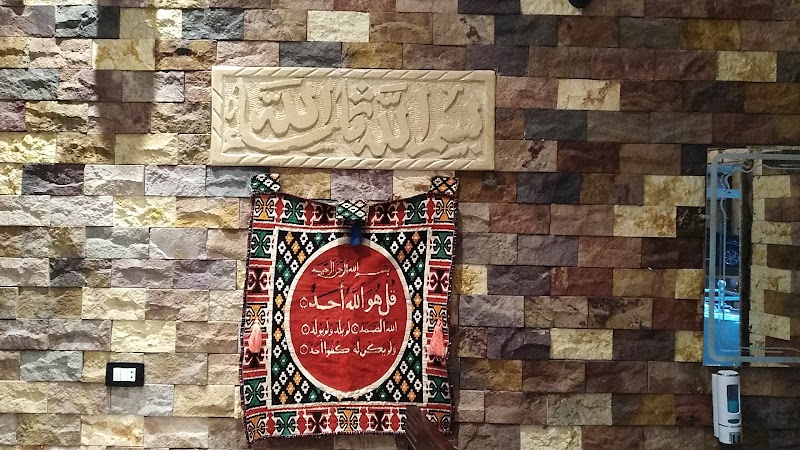 بسم الله ما شاء الله
بسم الله الرحمن الرحيم
قُل هُو الله أحدٌ ۝
الله الصمد ۝ لم يلد ولم يولد ۝
ولم يكن له كفوا احد ۝